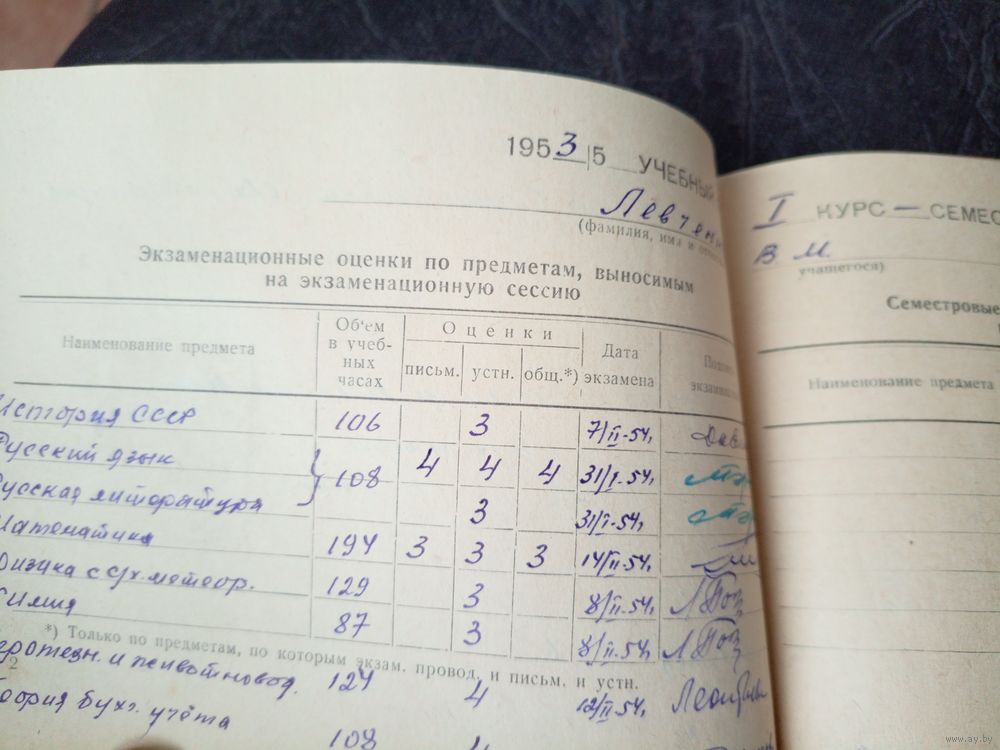 1953/5 УЧЕБНЫЙ
Левчен
(фамилия, имя и
Экзаменационные оценки по предметам, выносимым
на экзаменационную сессию
Наименование предмета
Об'ем
в учеб-
ных
часах
Оценки
письм.
устн.
общ.*)
Дата
экзамена
История СССР 106 3 7/II-54,
Русский язык 108 4 4 4 31/I-54,
Русская литература 3 31/I-54,
Математика 194 3 3 3 14/II-54,
Физика с с/х. метеор. 129 3 8/II-54,
Химия 87 3 8/II-54,
*) Только по предметам, по которым экзам. провод. и письм. и устн.
2
и животновод. 124 4 12/II-54,
Теория бухг. учёта 108 4
I КУРС — СЕМЕС
В М.
учащегося)
Семестровые
Наименование предмета
www.ay.by